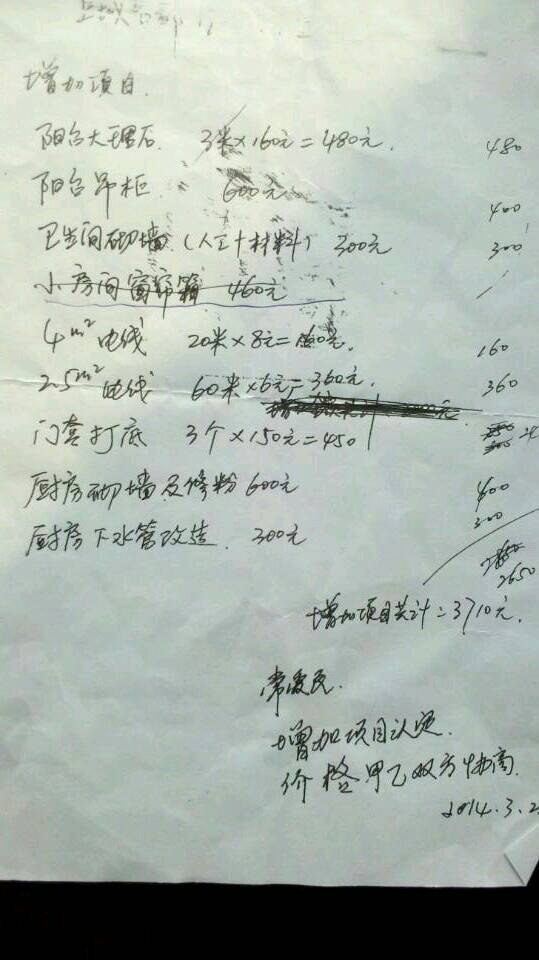 增加项目.
阳台大理石. 3米×160元=480元. 480
阳台吊柜. 600元. 400
卫生间砌墙 (人工+材料) 300元 300
小房间窗帘箱 460元
4m² 电线 20米×8元=160元. 160
2.5m² 电线 60米×6元=360元. 360
门套打底 3个×150元=450
厨房砌墙及修粉 600元 400
厨房下水管改造. 300元 300
2650
增加项目共计=3710元.
常爱民.
增加项目认定.
价格甲乙双方协商.
2014.3.2